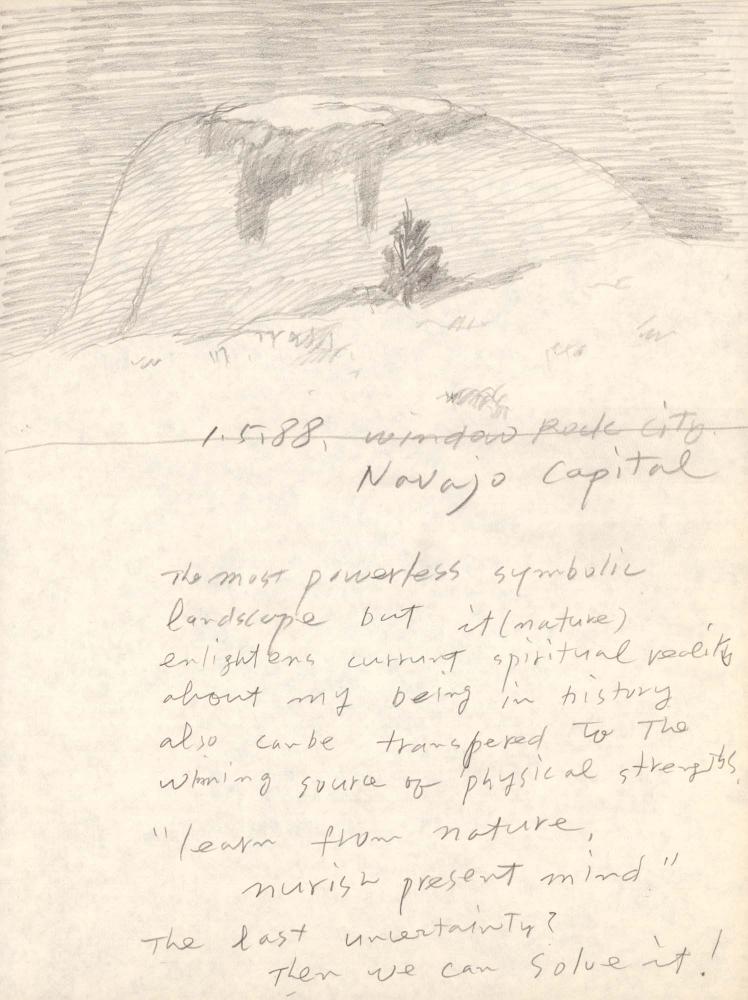 1.5.88, window Rock City.
Navajo Capital
The most powerless symbolic
landscape but it (nature)
enlightens current spiritual reality
about my being in history
also canbe transpered to The
winning source of physical strengths.
"learn from nature,
nurish present mind"
The last uncertainty?
Then we can solve it!